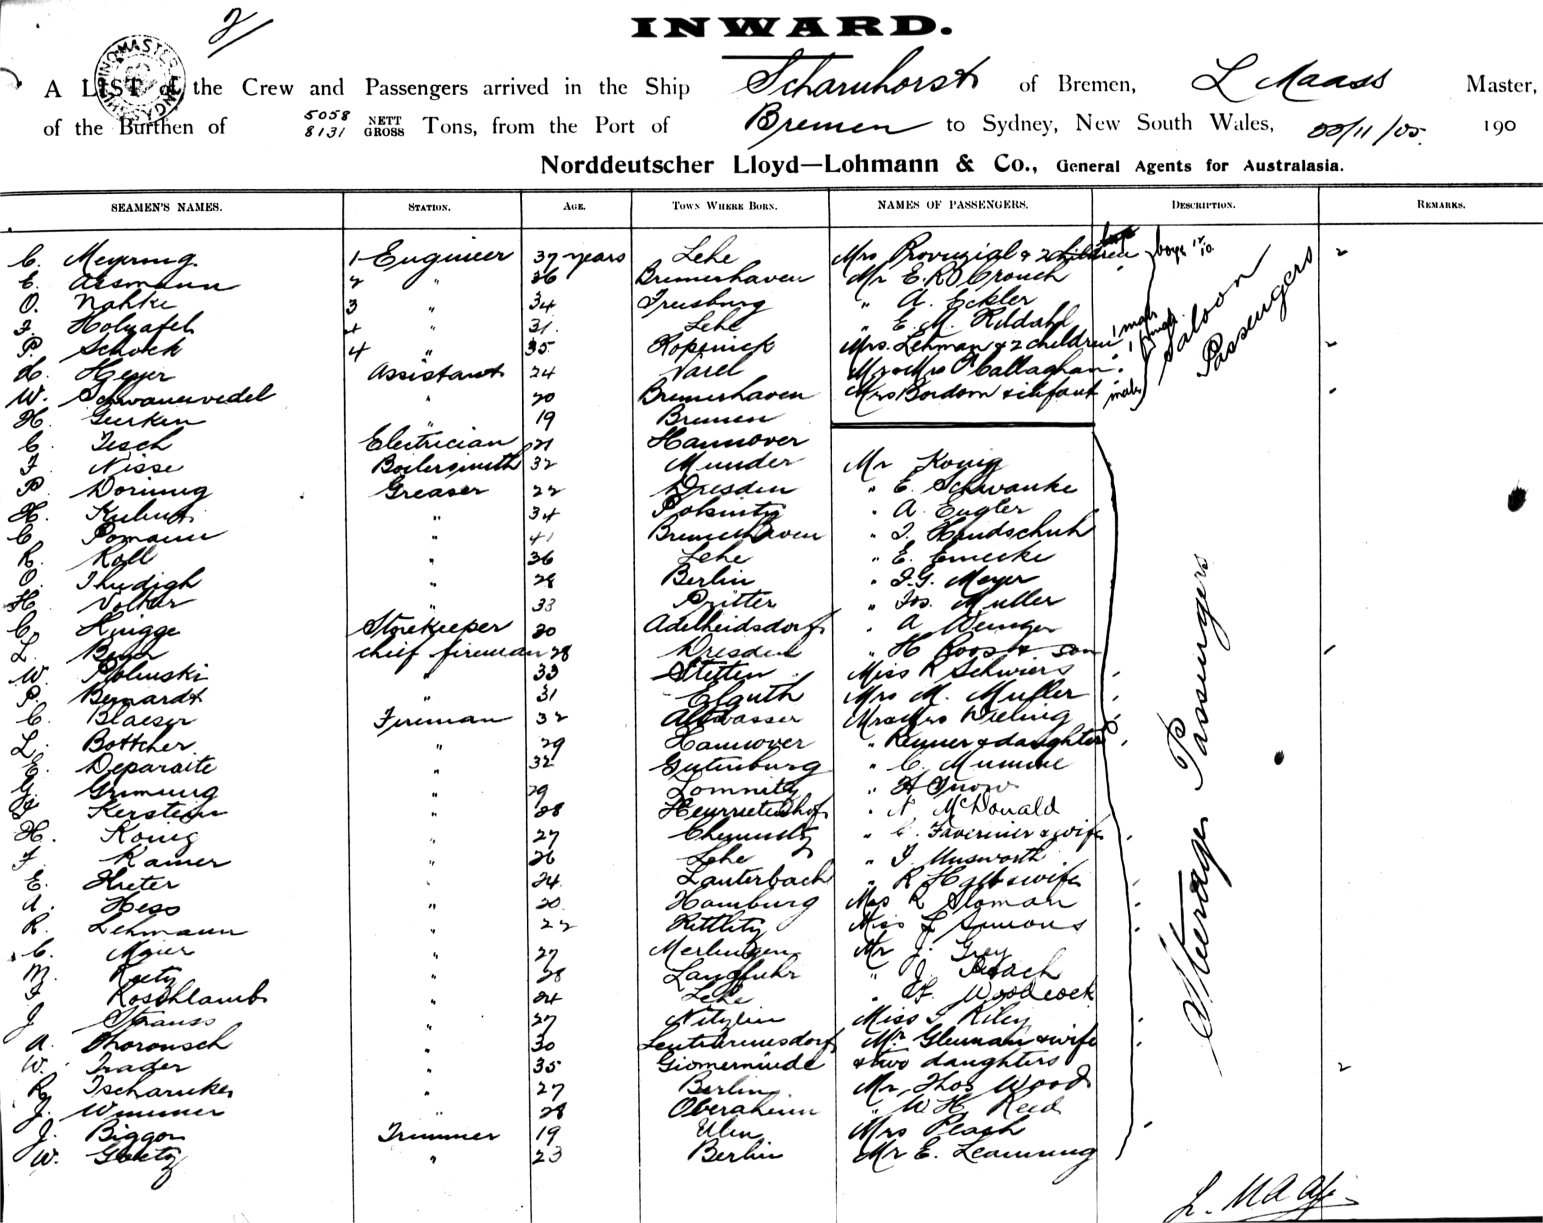 2/
INWARD.
A LIST of the Crew and Passengers arrived in the Ship Scharnhorst of Bremen, L Maass Master,
of the Burthen of 5058 8131 NETT GROSS Tons, from the Port of Bremen to Sydney, New South Wales, /11/05. 190
Norddeutscher Lloyd—Lohmann & Co., General Agents for Australasia.
SEAMEN'S NAMES. STATION. AGE. TOWN WHERE BORN. NAMES OF PASSENGERS. DESCRIPTION. REMARKS.
C. Meyering 1 Engineer 37 years Lehe Mrs Provinzial & 2 children boys 12 10. 2
E. Assmann 2 " 36 Bremerhaven Mr E. R. B. Crouch
O. Nahke 3 " 34 Freiburg " A. Eckler
F. Holzapfel 4 " 31. Lehe " E. M. Kildahl
P. Schock 4 " 35 Kopenick Mrs. Lehman & 2 children 1 male 1 female 2
H. Heyer Assistant 24 Varel Mr & Mrs O'Callaghan
W. Schwanewedel " 20 Bremerhaven Mrs Bordom & infant male
Saloon Passengers
H. Gerken " 19 Bremen
C. Tesch Electrician 21 Hannover
F. Nisse Boilersmith 32 Munder Mr Konig
P. Dorning Greaser 22 Dresden " E. Schwanke
H. " 34 " A. Engler
C. Pomann " 41 Bremerhaven " I. Handschuh
R. Roll " 36 Lehe " E. Emecke
O. Thudigh " 28 Berlin " F. G. Meyer
H. Volker " 33 Pritter " Jos. Muller
C. Knigge Storekeeper 30 Adelheidsdorf " A Weniger
L. chief fireman 28 Dresden " H Roos & son
W. Polinski " 33 Stettin Miss R Schwiers
P. Bernardt " 31 Elguth Mrs M. Muller
C. Blaeser Fireman 32 Altwasser Mr & Mrs Wieling
L. Bottcher " 29 Hannover " Renner & daughter
E. Deparaite " 32 Gutenburg " C. Mumme
G. Grimung " 29 Lomnitz " H Snow
F. Kerstein " 28 Henriettenhof " N McDonald
H. Konig " 27 Chemnitz " C. Faverinier & wife
F. Kramer " 26 Lehe " I. Unsworth
E. Kreter " 24 Lauterbach " R Holt & wife
A. Hess " 20 Hamburg Mrs R Sloman
R. Lehmann " 22 Kittlitz Miss L Simons
C. Maier " 27 Merlingen Mr J. Grey
M. Raetz " 28 Langfuhr " J. Peach
F. Roschlamb " 24 Lehe " Woodcock
J Strauss " 27 Nitzlin Miss I Riley
A. Thoronsch " 30 Mr. Gleman & wife
W. Trader " 35 & two daughters 2
R. Tscharnke " 27 Berlin Mr Thos Wood
J. Wimmer " 28 " W H Reed
J. Biggor Trimmer 19 Ulm Mrs Peach
W. Goetz " 23 Berlin Mr E. Leamung
Steerage Passengers
L. Maass